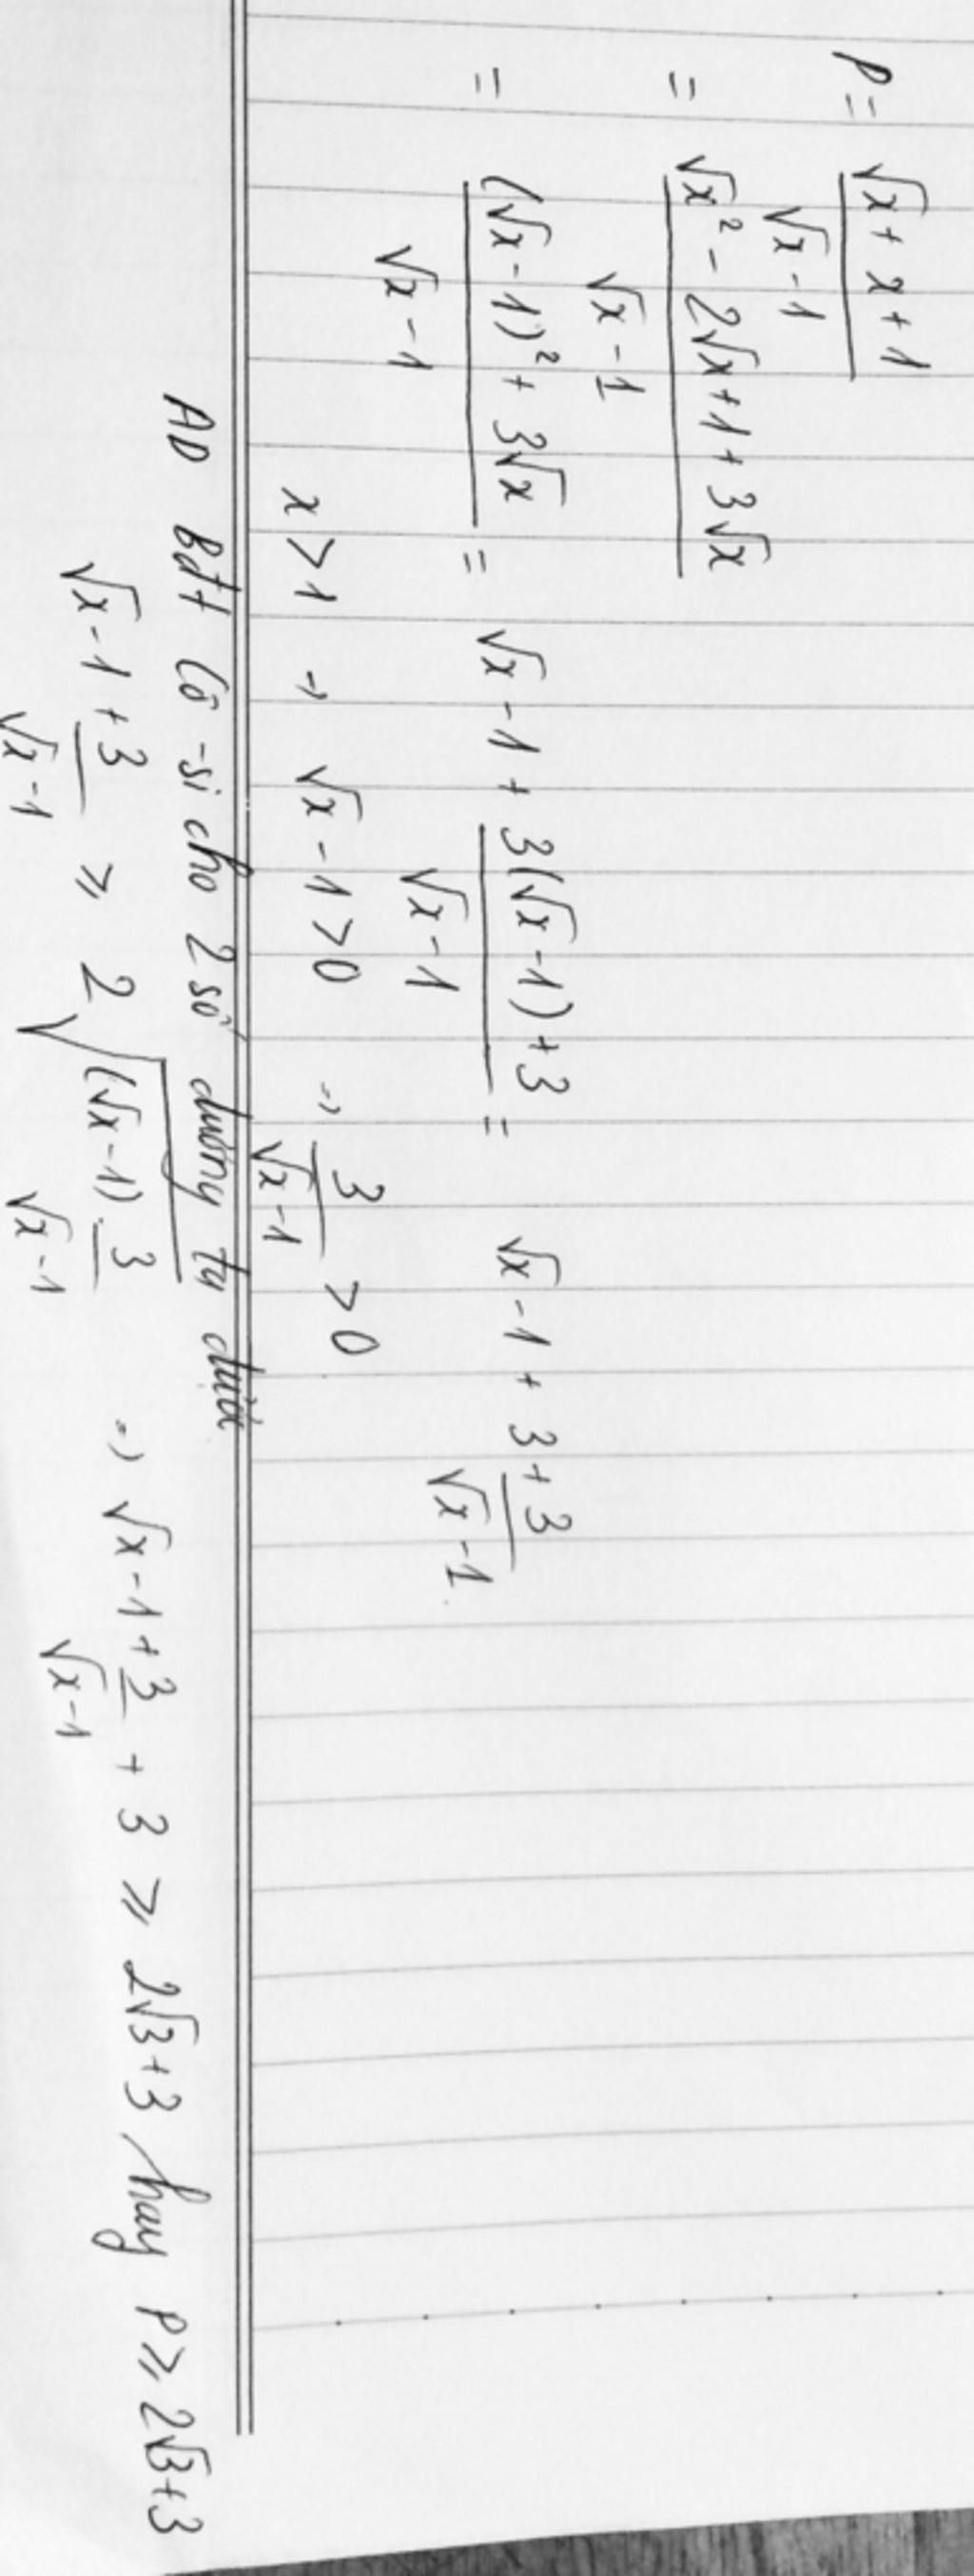 P = (√x + x + 1)/(√x - 1)
= (√x² - 2√x + 1 + 3√x)/(√x - 1)
= ((√x - 1)² + 3√x)/(√x - 1) = √x - 1 + (3(√x - 1) + 3)/(√x - 1) = √x - 1 + 3 + 3/(√x - 1)
x > 1 → √x - 1 > 0 → 3/(√x - 1) > 0
AD bđt Cô-si cho 2 số dương
√x - 1 + 3/(√x - 1) ≥ 2√((√x - 1) . 3/(√x - 1)) → √x - 1 + 3/(√x - 1) + 3 ≥ 2√3 + 3 hay P ≥ 2√3 + 3